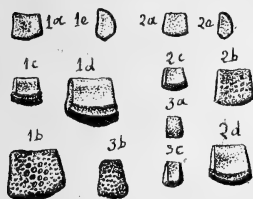 1a 1e 2a 2e
1c 1d 2c 2b
3a
1b 3b 3c 2d